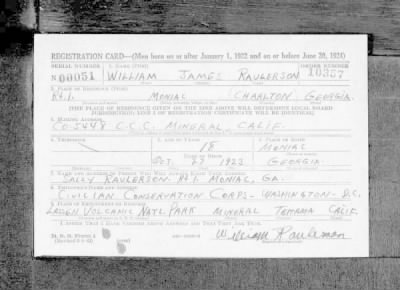 REGISTRATION CARD—(Men born on or after January 1, 1922 and on or before June 30, 1924)
SERIAL NUMBER 1. NAME (Print) ORDER NUMBER
N 00051 WILLIAM JAMES RAULERSON 10357
2. PLACE OF RESIDENCE (Print)
Rt.1. MONIAC CHARLTON GEORGIA.
[THE PLACE OF RESIDENCE GIVEN ON THE LINE ABOVE WILL DETERMINE LOCAL BOARD
JURISDICTION; LINE 2 OF REGISTRATION CERTIFICATE WILL BE IDENTICAL]
3. MAILING ADDRESS
CO-5448 C.C.C. MINERAL, CALIF.
4. TELEPHONE 5. AGE IN YEARS 6. PLACE OF BIRTH
18 MONIAC
DATE OF BIRTH
OCT. 27 1923 GEORGIA.
7. NAME AND ADDRESS OF PERSON WHO WILL ALWAYS KNOW YOUR ADDRESS
SALLY RAULERSON Rt.1 MONIAC, GA.
8. EMPLOYER'S NAME AND ADDRESS
CIVILIAN CONSERVATION CORPS- WASHINGTON- D.C.
9. PLACE OF EMPLOYMENT OR BUSINESS
LASSEN VOLCANIC NATL. PARK MINERAL TEHAMA CALIF.
I AFFIRM THAT I HAVE VERIFIED ABOVE ANSWERS AND THAT THEY ARE TRUE.
D. S. S. Form 1
William Raulerson